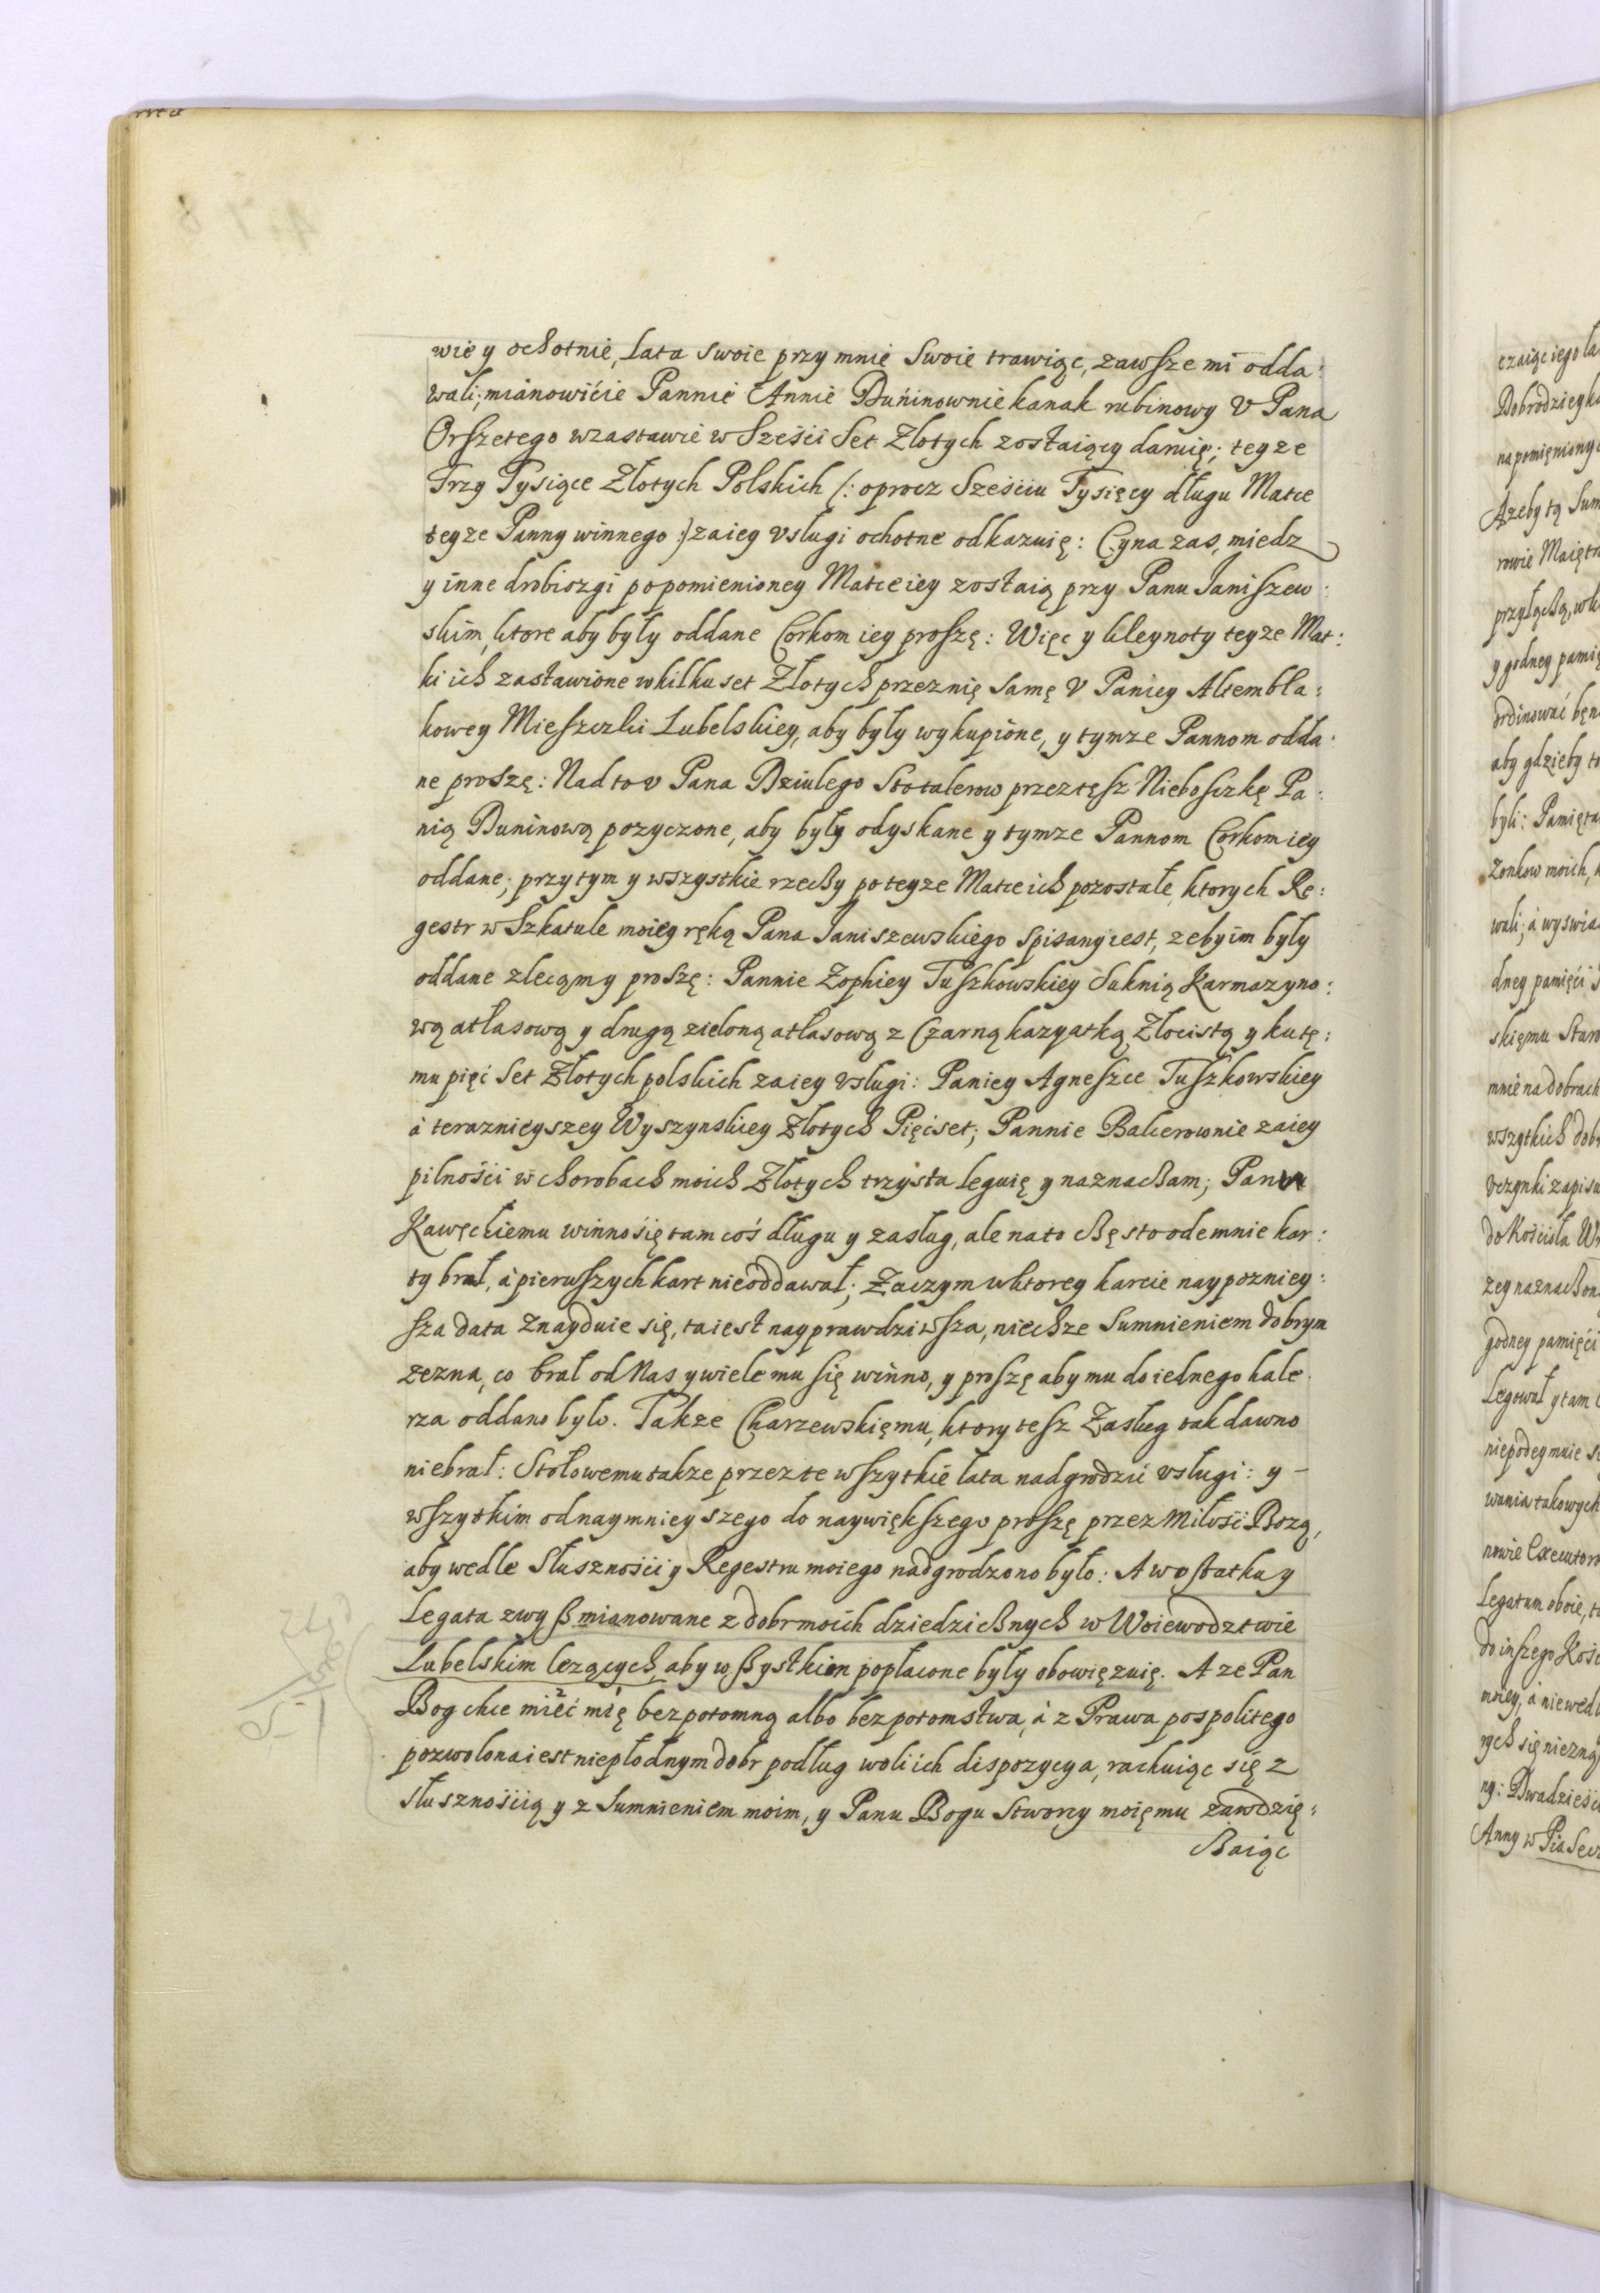 wie y ochotnie, Lata swoie przy mnie Swoie trawiąc, zawsze mi odda:
wali; mianowićie Pannie Annie Duninownie kanak rubinowy V Pana
Orszetego w zastawie w Sześci Set Złotych zostaiący daruię; teyze
Trzy Tysiące Złotych Polskich (: oprocz Sześciu Tysięcy długu Matce
teyze Panny winnego :) za iey vsługi ochotne odkazuię: Cyna zas, miedz
y inne drobiozgi po pomienioney Matce iey zostaią przy Panu Janiszew:
skim, ktore aby były oddane Corkom iey proszę: Więc y kleynoty teyze Mat:
ki ich zastawione w kilku set Złotych przez nię Samę V Paniey Altembla:
kowey Mieszczki Lubelskiey, aby były wykupione, y tymze Pannom odda:
ne proszę: Nad to v Pana Dziulego Sto talerow przez tęsz Nieboszkę Pa:
nią Duninową pozyczone, aby były odyskane y tymze Pannom Corkom iey
oddane; przy tym y wszystkie rzeczy po teyze Matce ich pozostałe, ktorych Re:
gestr w Szkatule moiey ręką Pana Janiszewskiego Spisany iest, zeby im były
oddane zlecąm y proszę: Pannie Zophiey Tuszkowskiey Suknią Karmazyno:
wą atłasową y drugą zieloną atłasową z Czarną kazyatką Złocistą y ku tę:
mu pięć Set Złotych polskich za iey Vsługi: Paniey Agneszce Tuszkowskiey
à teraznieyszey Wyszynskiey Złotych Pięćset; Pannie Balcerownie za iey
pilnośći w chorobach moich Złotych trzysta leguię y naznaczam; Panu
Kawęckiemu winno się tam coś długu y zasług, ale na to często odemnie kar:
ty brał, à pierwszych kart nie oddawał; Zaczym w ktorey karcie naypozniey:
sza data Znayduie się, ta iest nayprawdziwsza, niechze Sumnieniem dobrym
zezna, co brał od Nas y wiele mu się winno, y proszę aby mu do iednego hale
rza oddano było. Takze Charzewskięmu, ktory tesz Zasług tak dawno
nie brał: Stołowemu takze przez te wszytkie lata nadgrodzić vsługi: y –
wszytkim od naymnieyszego do naywiększego proszę przez Miłość Bozą,
aby wedle Słusznośći y Regestru moiego nadgrodzono było: A w ostatku y
Legata zwyß mianowane z dobr moich dziedzicznych w Woiewodztwie
Lubelskim lezących, aby wßystkim popłacone były obowięzuię. A ze Pan
Bog chce mieć mię bezpotomną albo bez potomstwa, à z Prawa pospolitego
pozwolona iest niepłodnym dobr podług woli ich dispozycya, rachuiąc się z
słusznośćią y z Sumnieniem moim, y Panu Bogu Stworcy moięmu zawdzię:
czaiąc